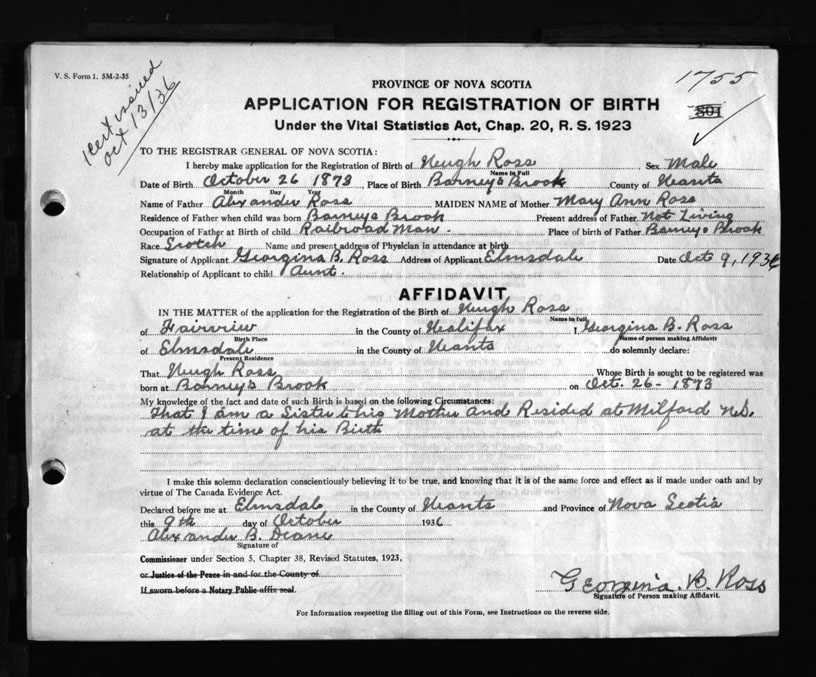 V. S. Form 1. 5M-2-35
1 Cert issued
Oct 13/36
1755
801
PROVINCE OF NOVA SCOTIA
APPLICATION FOR REGISTRATION OF BIRTH
Under the Vital Statistics Act, Chap. 20, R. S. 1923
TO THE REGISTRAR GENERAL OF NOVA SCOTIA:
I hereby make application for the Registration of Birth of Hugh Ross Sex Male
Name in Full
Date of Birth October 26 1873 Place of Birth Barney's Brook County of Hants
Month Day Year
Name of Father Alexander Ross MAIDEN NAME of Mother Mary Ann Ross
Residence of Father when child was born Barneys Brook Present address of Father Not Living
Occupation of Father at Birth of child Railroad Man. Place of birth of Father Barneys Brook
Race Scotch Name and present address of Physician in attendance at birth
Signature of Applicant Georgina B. Ross Address of Applicant Elmsdale Date Oct 9, 1936
Relationship of Applicant to child Aunt.
AFFIDAVIT
IN THE MATTER of the application for the Registration of the Birth of Hugh Ross
Name in full
of Fairview in the County of Halifax I, Georgina B. Ross
Birth Place Name of person making Affidavit
of Elmsdale in the County of Hants do solemnly declare:
Present Residence
That Hugh Ross Whose Birth is sought to be registered was
born at Barney's Brook on Oct. 26 - 1873
My knowledge of the fact and date of such Birth is based on the following Circumstances:
That I am a Sister to his Mother and Resided at Milford N.S.
at the time of his Birth
I make this solemn declaration conscientiously believing it to be true, and knowing that it is of the same force and effect as if made under oath and by
virtue of The Canada Evidence Act.
Declared before me at Elmsdale in the County of Hants and Province of Nova Scotia
this 9th day of October 1936
Alexander B. Deane
Signature of
Commissioner under Section 5, Chapter 38, Revised Statutes, 1923,
or Justice of the Peace in and for the County of
If sworn before a Notary Public affix seal.
Georgina. B. Ross
Signature of Person making Affidavit.
For Information respecting the filling out of this Form, see Instructions on the reverse side.